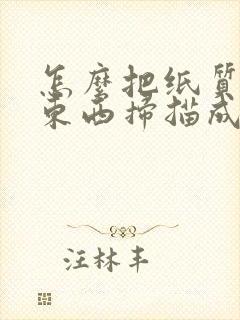 怎麽把纸质
东西扫描成
汪林丰